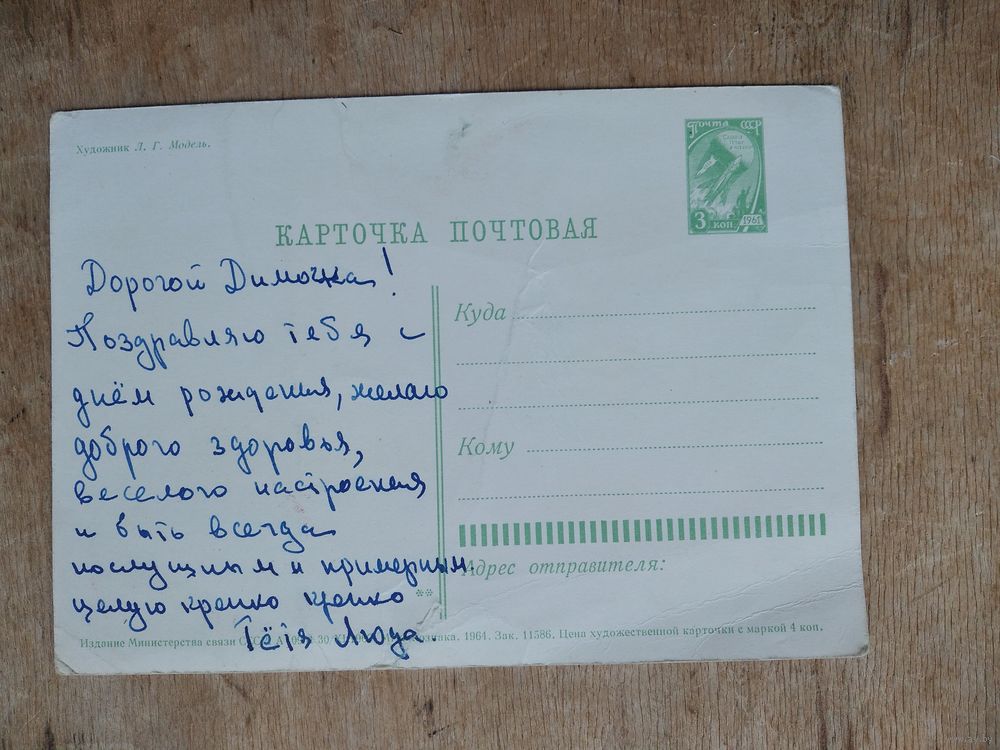 Художник Л. Г. Модель.
Почта СССР
3 коп
1961
КАРТОЧКА ПОЧТОВАЯ
Дорогой Димочка!
Поздравляю тебя с
днём рождения, желаю
доброго здоровья,
веселого настроения
и быть всегда
послушным и примерным.
целую крепко крепко
Тётя Люда.
Куда
Кому
Адрес отправителя:
Издание Министерства связи 1964. Зак. 11586. Цена художественной карточки с маркой 4 коп.